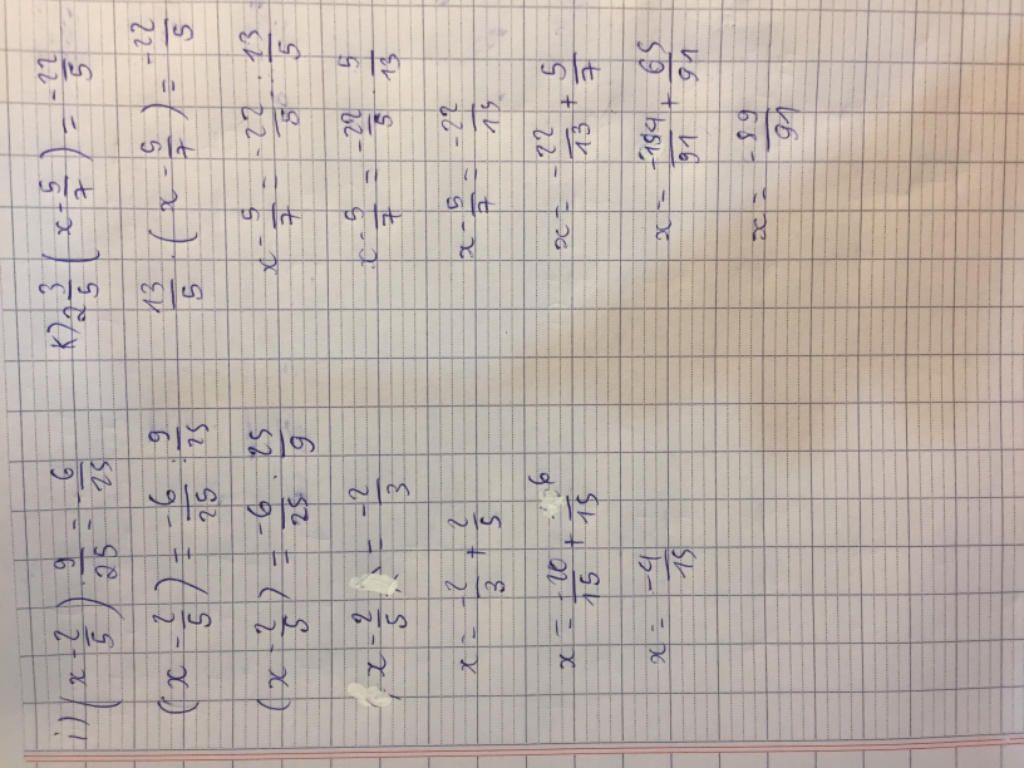 i) (x - 2/5) . 9/25 = -6/25
(x - 2/5) = -6/25 : 9/25
(x - 2/5) = -6/25 . 25/9
x - 2/5 = -2/3
x = -2/3 + 2/5
x = -10/15 + 6/15
x = -4/15
K) 2 3/5 (x - 5/7) = -22/5
13/5 . (x - 5/7) = -22/5
x - 5/7 = -22/5 : 13/5
x - 5/7 = -22/5 . 5/13
x - 5/7 = -22/13
x = -22/13 + 5/7
x = -154/91 + 65/91
x = -89/91